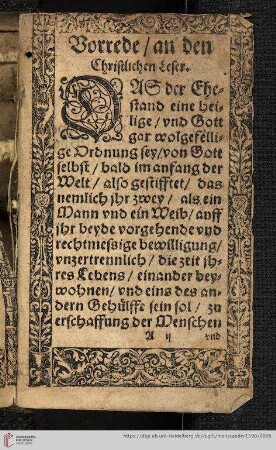 Vorrede / an den
Christlichen Leser.
DAS der Ehe-
stand eine hei-
lige / vnd Gott
gar wolgefelli-
ge Ordnung sey / von Gott
selbst / bald im anfang der
Welt / also gestifftet / das
nemlich jhr zwey / als ein
Mann vnd ein Weib / auff
jhr beyde vorgehende vnd
rechtmessige bewilligung /
vnzertrennlich / die zeit jh-
res Lebens / einander bey-
wohnen / vnd eins des an-
dern Gehülffe sein sol / zu
erschaffung der Menschen
A ij vnd